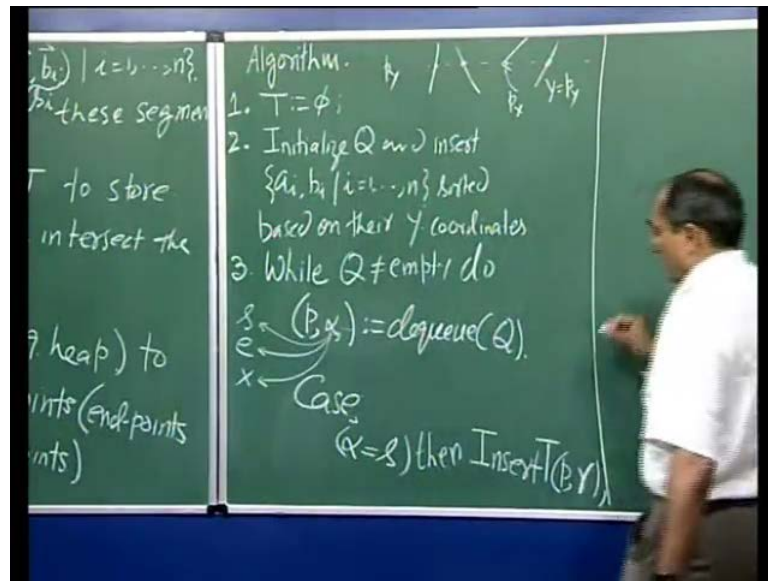 b⃗i) | i=1,...,n}.
these segmen
T to store
intersect the
heap) to
ints (end-points
ints)
Algorithm.
Py
Px
y=Py
1. T:=ϕ;
2. Initialize Q and insert
{ai, bi | i=1,..,n} sorted
based on their y coordinates
3. While Q≠empty do
(P,α):=dequeue(Q).
s
e
x
Case
(α=s) then InsertT(P,r),